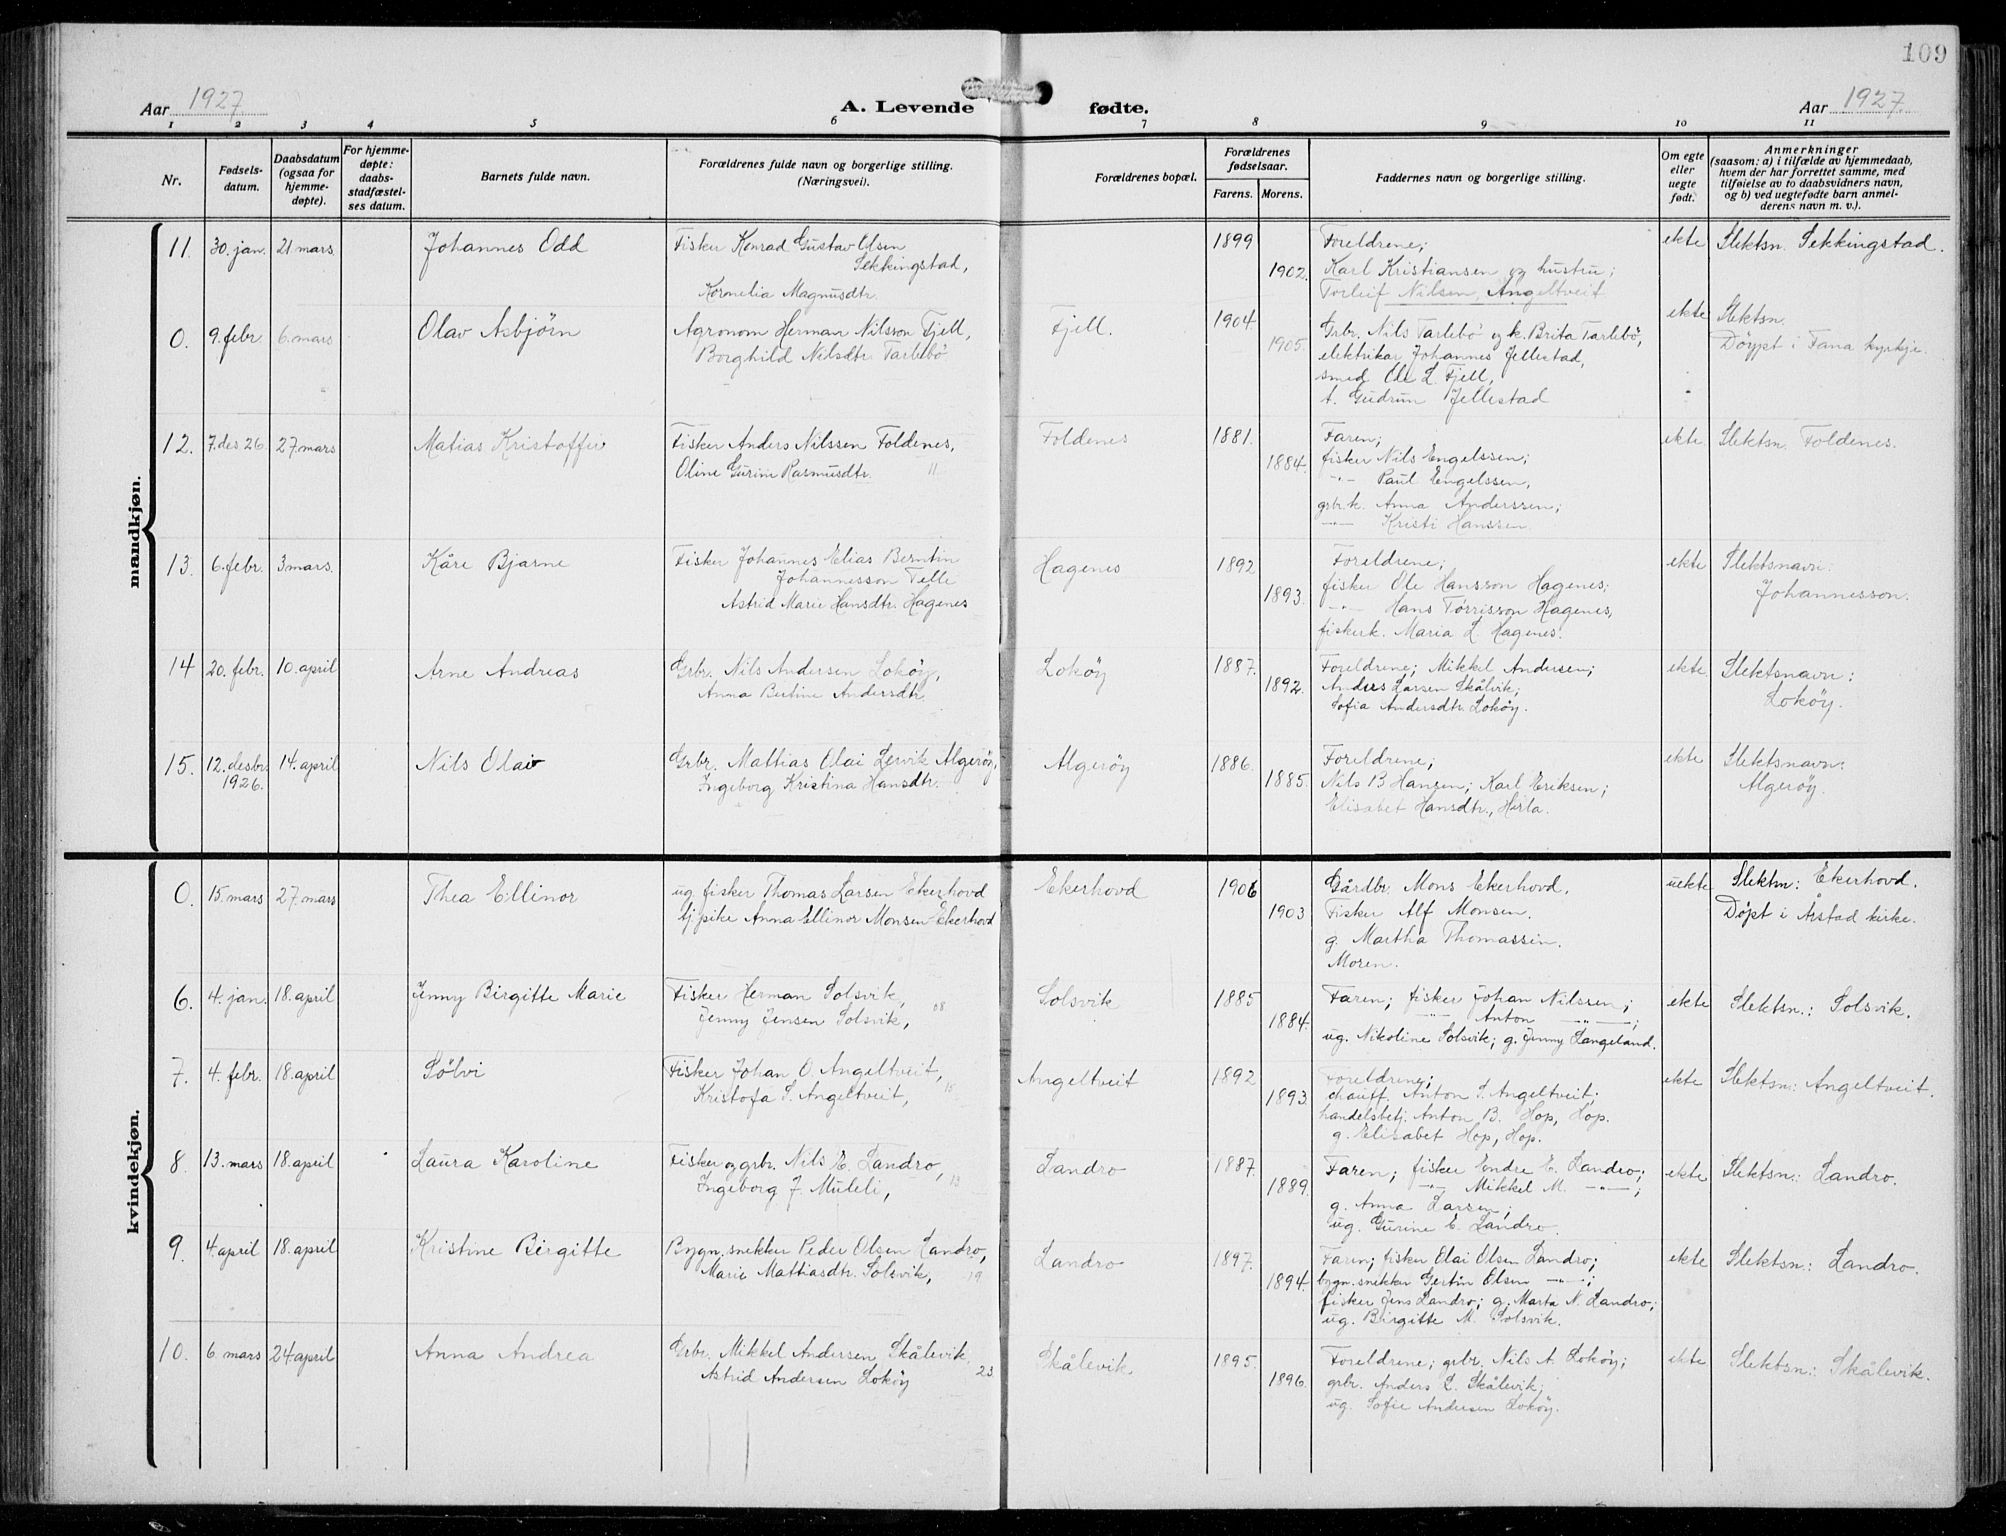 109
Aar 1927
A. Levende fødte.
Aar 1927
1 2 3 4 5 6 7 8 9 10 11
Nr.
Fødsels-
datum.
Daabsdatum
(ogsaa for
hjemme-
døpte).
For hjemme-
døpte:
daabs-
stadfæstel-
ses datum.
Barnets fulde navn.
Forældrenes fulde navn og borgerlige stilling.
(Næringsvei).
Forældrenes bopæl.
Forældrenes
fødselsaar.
Farens. Morens.
Faddernes navn og borgerlige stilling.
Om egte
eller
uegte
født.
Anmerkninger
(saasom: a) i tilfælde av hjemmedaab,
hvem der har forrettet samme, med
tilføielse av to daabsvidners navn,
og b) ved uegtefødte barn anmel-
derens navn m. v.).
mandkjøn.
11. 30. jan. 21. mars Johannes Odd
Fisker Konrad Gustav Olsen
Sekkingstad,
Kornelia Magnusdtr.
1899
1902.
Foreldrene;
Karl Kristiansen og hustru;
Torleif Nilsen, Angeltveit
ekte Slektsn. Sekkingstad.
0. 9. febr. 6. mars Olav Asbjørn
Agronom Herman Nilsson Fjell,
Borghild Nilsdtr. Tarlebö
Fjell.
1904
1905.
Grbr. Nils Tarlebö og k. Brita Tarlebö,
elektriker Johannes Jellestad,
smed Ole L. Fjell,
t. Gudrun Jellestad
ekte Slektsn.
Döypt i Fana kyrkje.
12. 7. des 26. 27. mars Matias Kristoffer
Fisker Anders Nilssen Foldenes,
Oline Gurine Rasmusdtr. 11
Foldenes
1881.
1884.
Faren;
fisker Nils Engelssen;
-"- Paul Engelssen,
grbr.k. Anna Anderssen;
-"- Kristi Hanssen.
ekte Slektsn. Foldenes.
13. 6. febr. 3 mars. Kåre Bjarne
Fisker Johannes Elias Berntin
Johannesson Telle
Astrid Marie Hansdtr. Hagenes
Hagenes
1892
1893.
Foreldrene;
fisker Ole Hansson Hagenes;
-"- Hans Tørrisson Hagenes,
fiskerk. Maria L. Hagenes.
ekte Slektsnavn:
Johannesson.
14 20. febr. 10. april Arne Andreas
Grbr. Nils Andersen Loköy,
Anna Bertine Andersdtr.
Loköy
1887.
1892.
Foreldrene; Mikkel Andersen;
Anders Larsen Skålvik;
Sofia Andersdtr. Loköy.
ekte Slektsnavn:
Loköy.
15. 12. desbr. 14. april Nils Olav
1926.
Grbr. Mattias Olai Lervik Algeröy,
Ingeborg Kristina Hansdtr.
Algeröy
1886.
1885.
Foreldrene;
Nils B Hansen; Karl Eriksen;
Elisabet Hansdtr., Herla.
ekte Slektsnavn:
Algeröy.
kvindekjøn.
0. 15. mars 27. mars Thea Ellinor
ug. fisker Thomas Larsen Ekerhovd
tj.pike Anna Ellinor Monsen Ekerhovd
Ekerhovd
1906
1903
Gårdbr. Mons Ekerhovd.
Fisker Alf Monsen.
g. Martha Thomassen.
Moren.
uekte Slektsn: Ekerhovd.
Döpt i Årstad kirke.
6. 4. jan. 18. april Jenny Birgitte Marie
Fisker Herman Solsvik,
Jenny Jensen Solsvik, 08.
Solsvik
1885
1884.
Faren; fisker Johan Nilssen;
-"- Anton -"-;
ug. Nikoline Solsvik; g. Jenny Langeland.
ekte Slektsn.: Solsvik.
7. 4. febr. 18. april Sölvi
Fisker Johan O. Angeltveit,
Kristofa S. Angeltveit, 15
Angeltveit
1892
1893.
Foreldrene;
chauff. Anton S. Angeltveit;
handelsbetj. Anton B. Hop, Hop.
g. Elisabet Hop, Hop.
ekte Slektsn.: Angeltveit.
8. 13. mars 18. april Laura Karoline
Fisker og grbr. Nils E. Landro,
Ingeborg J. Muleli, 13
Landro
1887.
1889.
Faren; fisker Endre E. Landro;
-"- Mikkel M. -"-;
g. Anna Larsen;
ug. Gurine E. Landro.
ekte Slektsn.: Landro.
9. 4. april 18. april Kristine Birgitte
Bygn. snekker Peder Olsen Landro,
Marie Mattiasdtr. Solsvik, 19
Landro
1897.
1894.
Faren; fisker Olai Olsen Landro;
bygn. snekker Gertin Olsen -"-;
fisker Jens Landro; g. Marta N. Landro;
ug. Birgitte M. Solsvik.
ekte Slektsn.: Landro.
10. 6. mars 24 april Anna Andrea
Grbr. Mikkel Andersen Skålevik,
Astrid Andersen Loköy 23
Skålevik.
1895.
1896.
Foreldrene; grbr. Nils A. Loköy;
grbr. Anders L. Skålevik;
ug. Sofie Andersen Loköy.
ekte Slektsn.: Skålevik.